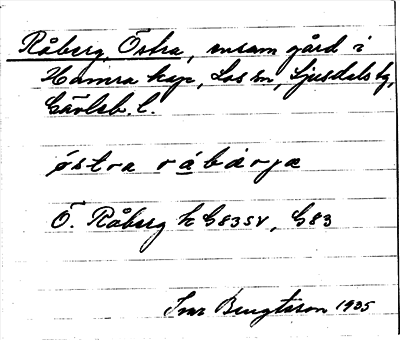 Råberg, Östra, ensam gård i
Hamra kap., Los sn, Ljusdals tg,
Gävleb. l.
östra råbärjæ
Ö. Råberg k G83SV, G83
Ivar Bengtsson 1935